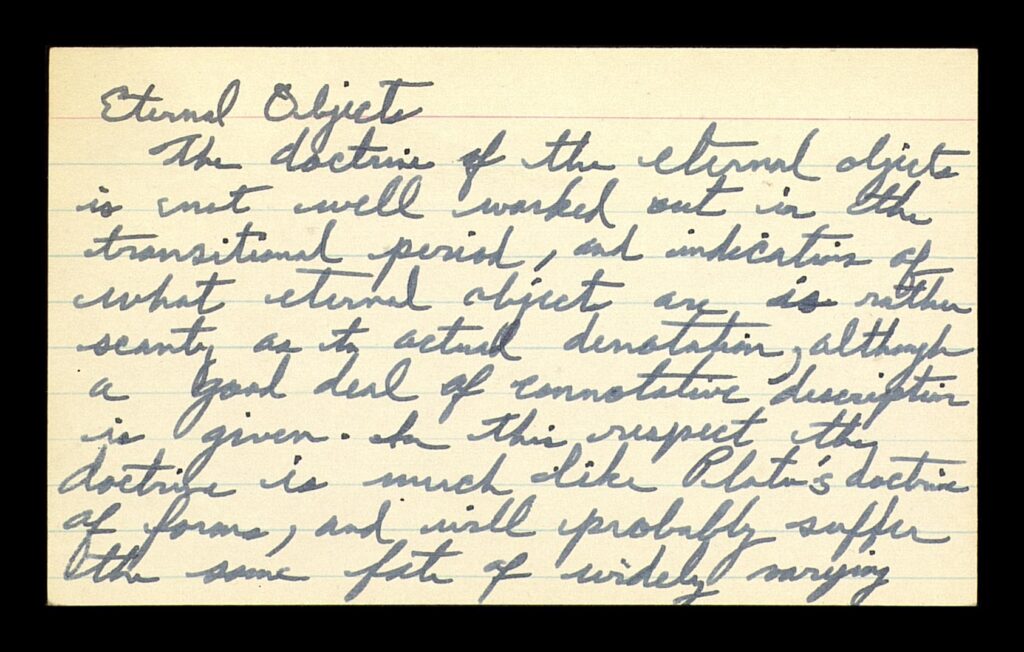 Eternal Objects
The doctrine of the eternal objects
is not well worked out in the
transitional period, and indications of
what eternal object are is rather
scanty as to actual denotation, although
a good deal of connotative description
is given. In this respect the
doctrine is much like Plato's doctrine
of forms, and will probably suffer
the same fate of widely varying